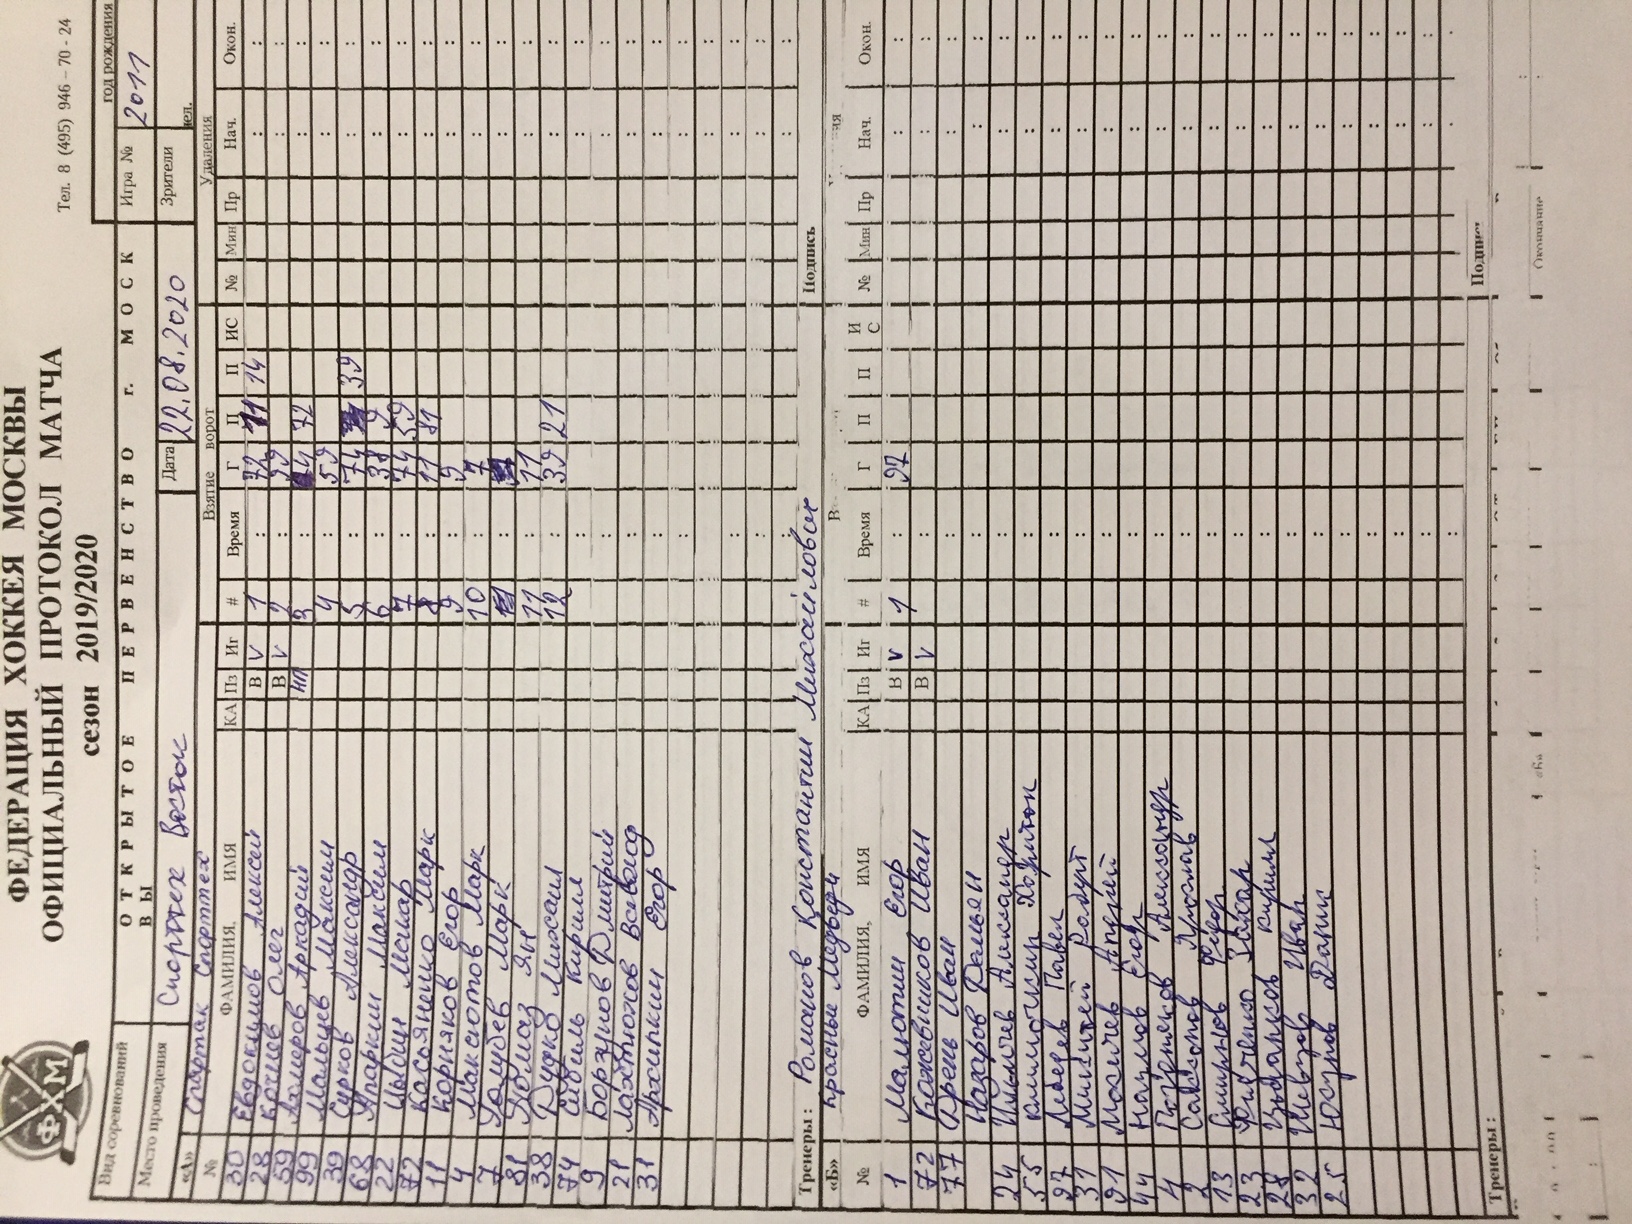 ФЕДЕРАЦИЯ ХОККЕЯ МОСКВЫ
ОФИЦИАЛЬНЫЙ ПРОТОКОЛ МАТЧА
сезон 2019/2020
Тел. 8 (495) 946 – 70 - 24
год рождения
Вид соревнований ОТКРЫТОЕ ПЕРВЕНСТВО г. МОСК
ВЫ
Игра № 2011
Место проведения Спортех Восток Дата 22.08.2020 Зрители чел.
«А» Спартак Спорттех Взятие ворот Удаления
№ ФАМИЛИЯ, ИМЯ КА Пз Иг # Время Г П П ИС № Мин Пр Нач. Окон.
30 Евдокимов Алексей В V 1 : 72 11 14 : :
28 Кочнев Олег В V 2 : 39 : :
59 Ахмеров Аркадий НП 3 : 44 72 : :
99 Мальцев Максим 4 : 59 : :
39 Сурков Александр 5 : 74 39 : :
68 Апаркин Максим 6 : 38 9 : :
22 Цыбин Исмар 7 : 74 59 : :
72 Касяненко Марк 8 : 11 81 : :
11 Корняков Егор 9 : 9 : :
4 Максютов Марк 10 : 7 : :
7 Голубев Марк : : :
81 Гомаз Ян 11 : 11 : :
38 Дудко Михаил 12 : 39 21 : :
74 Сивель Кирилл : : :
9 Борзунов Дмитрий : : :
21 Лахтюхов Всеволод : : :
31 Архипкин Егор : : :
Тренеры: Романов Константин Михайлович Подпись
«Б» Красные Медведи
№ ФАМИЛИЯ, ИМЯ КА Пз Иг # Время Г П П ИС № Мин Пр Нач. Окон.
1 Малютин Егор В V 1 : 97 : :
72 Кожевников Иван В V : : :
77 Дрень Иван : : :
Назаров Демьян : : :
24 Ильичев Александр : : :
55 : : :
97 Лебедев Павел : : :
31 Роберт : : :
91 Мосичев Андрей : : :
44 Наумов Егор : : :
4 Александр : : :
2 Ярослав : : :
13 Смирнов Фёдор : : :
23 Федченко Захар : : :
28 Цыганков Кирилл : : :
32 Шевцов Иван : : :
25 Юсупов Данис : : :
Тренеры: Подпись
Окончание